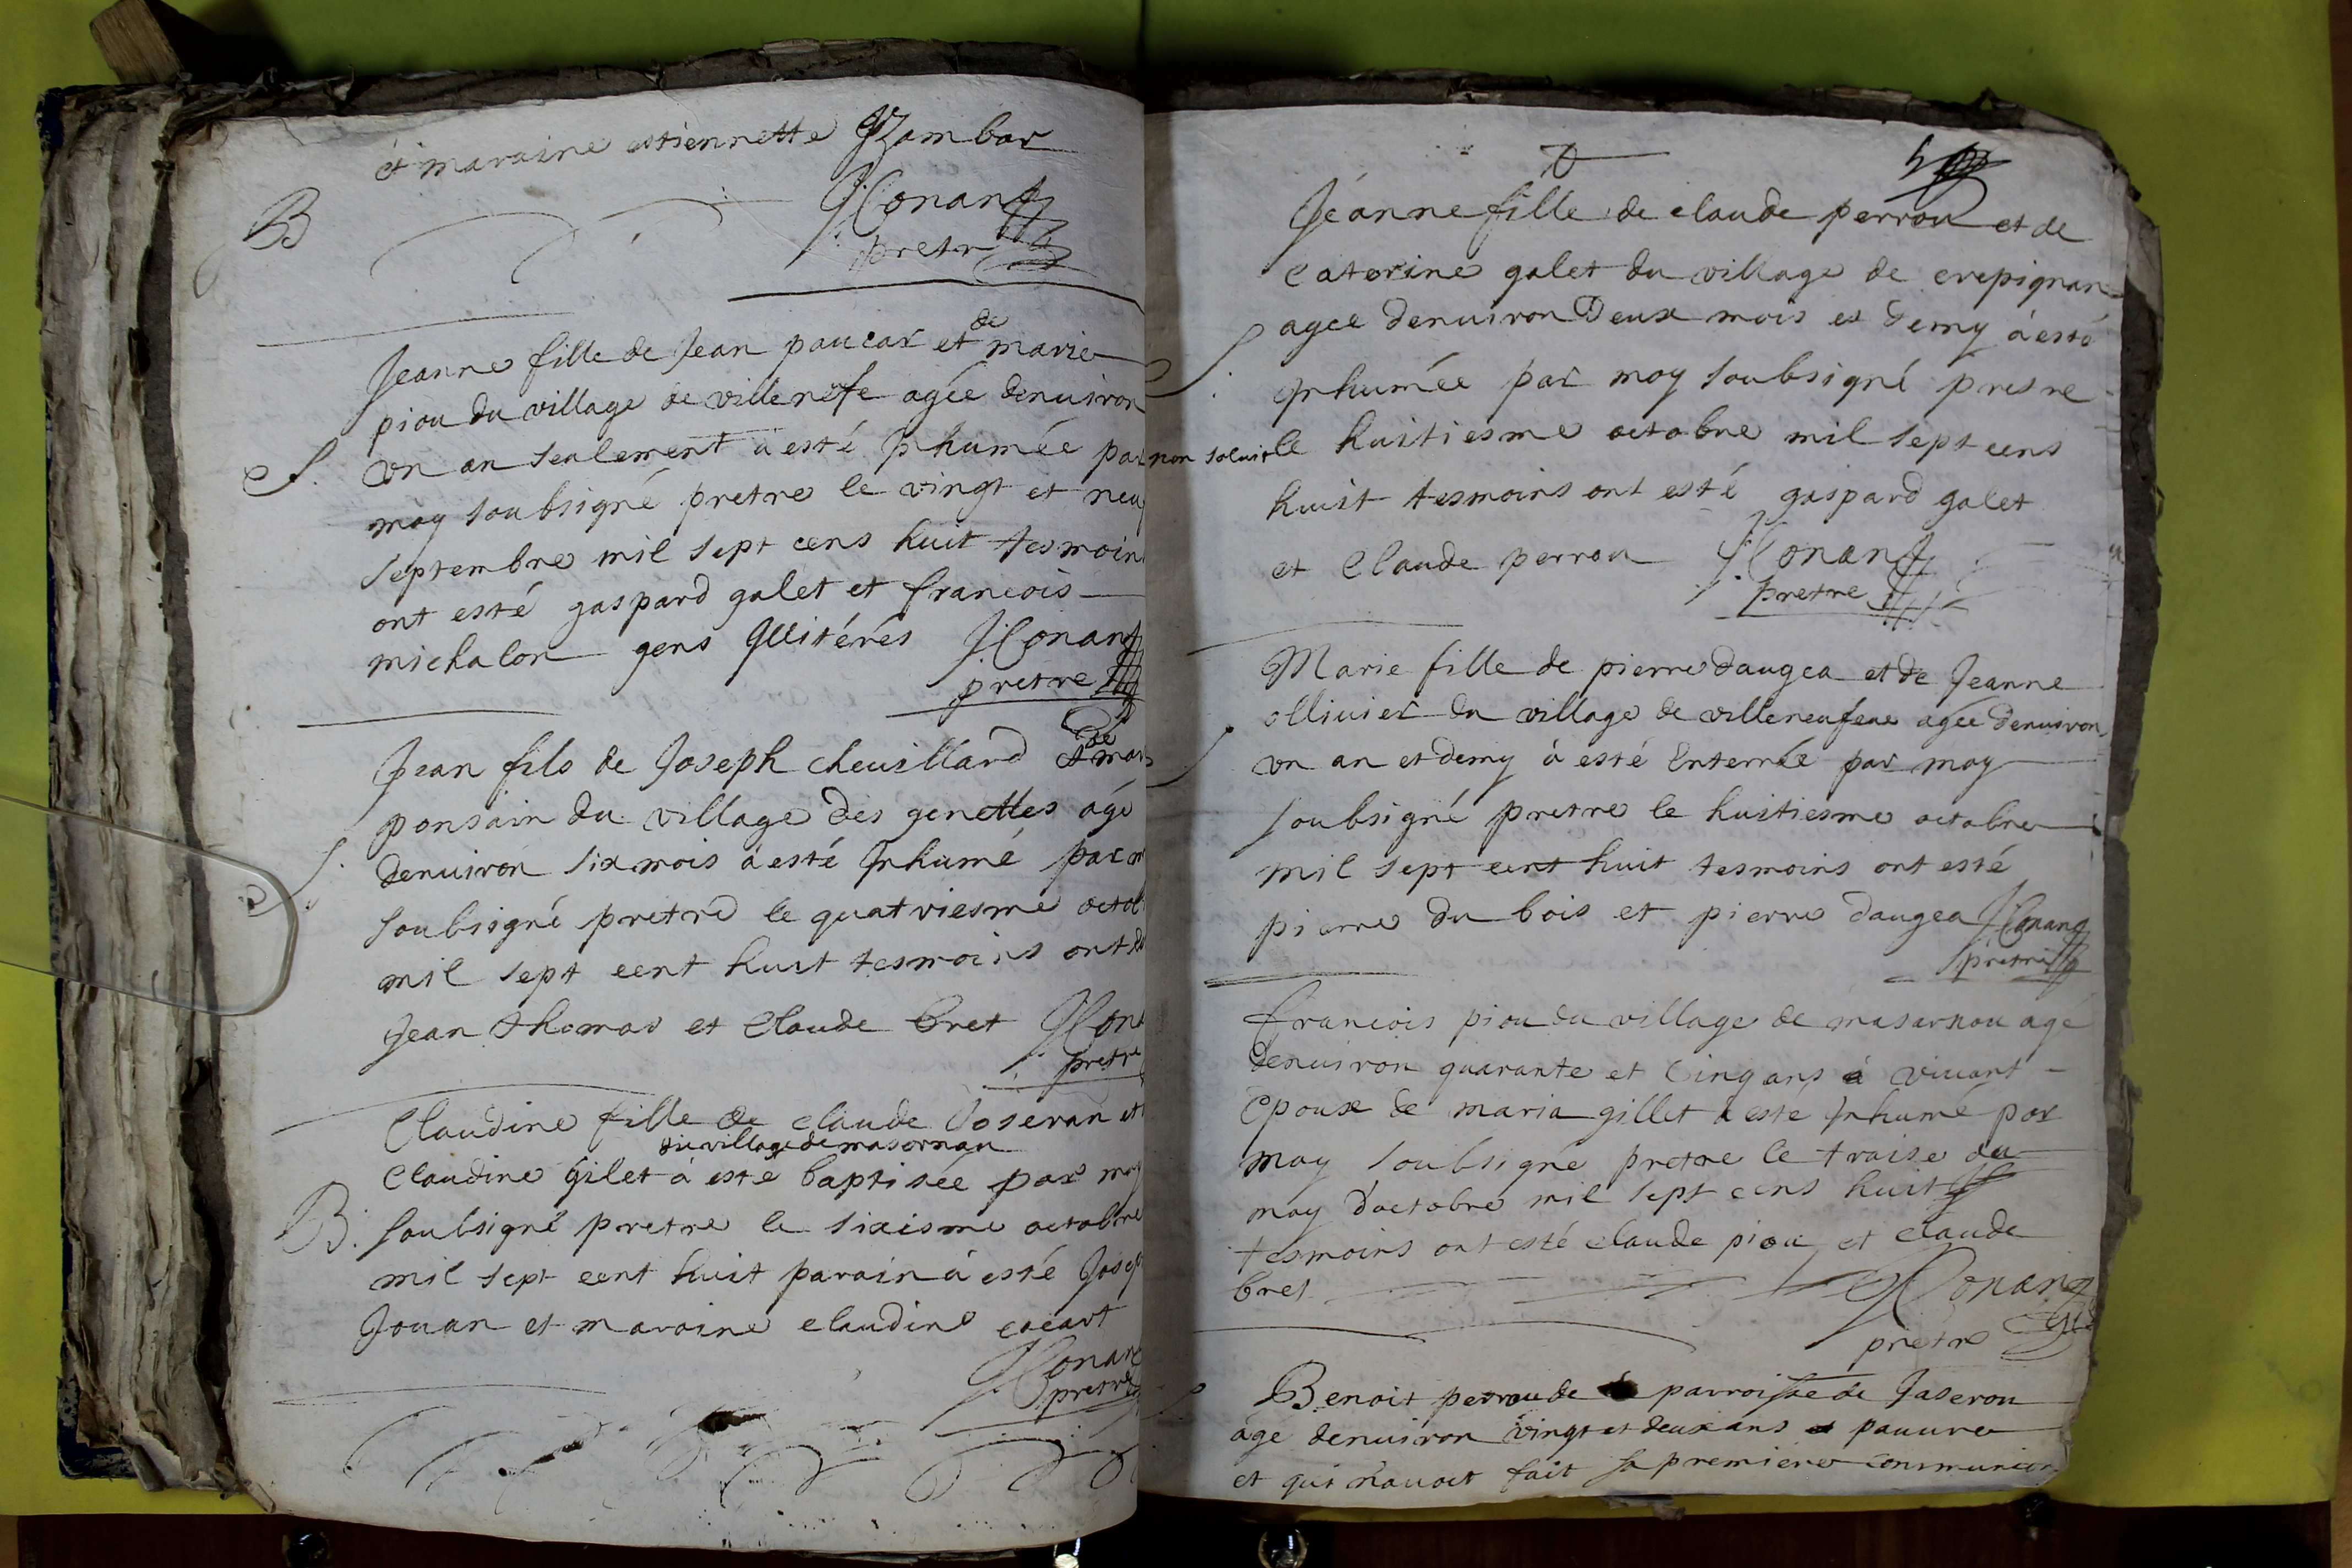 et maraine estiennette Jambar
B
J. Conand
pretre
Jeanne fille de Jean paucar et de marie
piou du village de villenefe agée denuiron
S. vn an seulement à esté Jnhumée par
moy soubsigné pretre le vingt et neuf
septembre mil sept cens huit tesmoins
ont esté gaspard galet et francois
michalon gens Jllitérés J. Conand
pretre
Jean fils de Joseph cheuillard et de mar
ponsain du village des genettes agé
S. denuiron six mois à esté Jnhumé par m
soubsigné pretre le quatriesme octob
mil sept cent huit tesmoins ont es
Jean thomas et Claude bret J. Cona
pretre
Claudine fille de claude Joseran et
du village de masornan
Claudine Gilet à esté baptisée par moy
B. soubsigné pretre le sixisme octobre
mil sept cent huit parain à esté Josep
Jouan et maraine claudine cocart
J. Conand
pretre
Jeanne fille de claude perrou et de
Caterine galet du village de crepignan
agee denuiron Deux mois et demy à esté
S. Jnhumée par moy soubsigné prestre
non soluit le huitiesme octobre mil sept cens
huit tesmoins ont esté gaspard galet
et Claude perrou J. Conand
pretre
Marie fille de pierre daugea et de Jeanne
ollivier du village de villeneufeue agée denuiron
S. vn an et demy à esté Enterrée par moy
soubsigné pretre le huitiesme octobre
mil sept cent huit tesmoins ont esté
pierre du bois et pierre daugea J. Conand
pretre
francois piou du village de masarnou agé
denuiron quarante et Cinq ans à viuant
Epoux de maria gillet à esté Jnhumé par
moy soubsigné pretre le traise du
moy d'octobre mil sept cens huit
tesmoins ont esté claude piou et claude
bret J. Conand
pretre
Benoit perrou de parroisse de Jaseron
age denuiron vingt et deux ans et pauure
et qui n'auoit fait sa premiere communion